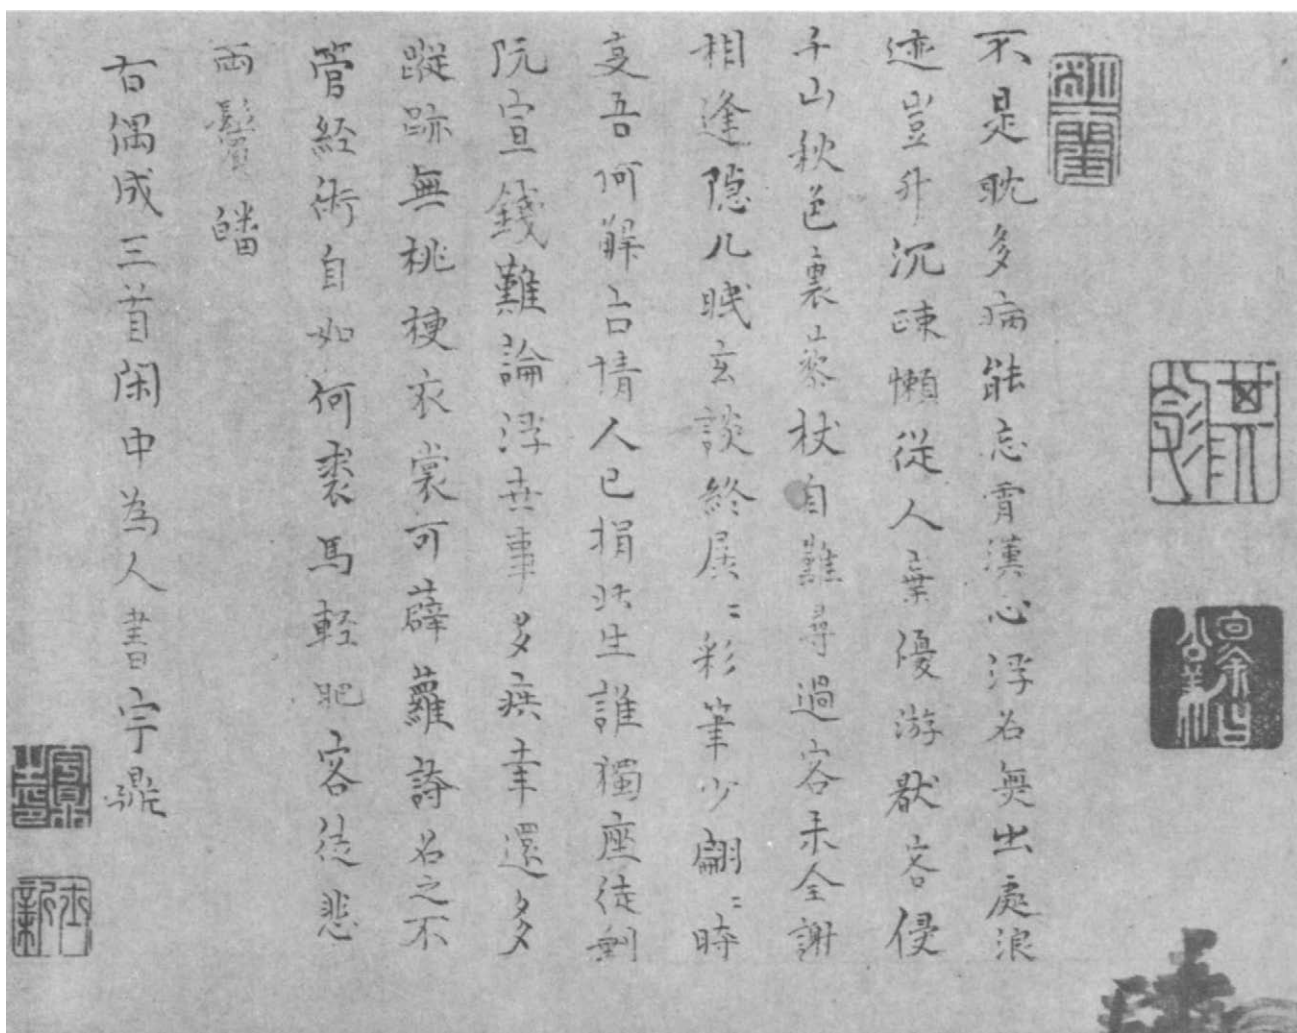 不是耽多病能忘霄漢心浮名無出處浪
迹豈升沉疎懶從人棄優游厭客侵
千山秋色裏藜杖自難尋過客未全謝
相逢隐几眠玄談終展〻彩筆少翩〻時
吾何解占情人已捐浮生誰獨座徒剩
阮宣錢難論浮世事多疾幸還多
蹤跡無桃梗衣裳可薜蘿詩名之不
管經術自如何裘馬輕肥客徒悲
兩鬢皤
右偶成三首閑中為人書宇鼎